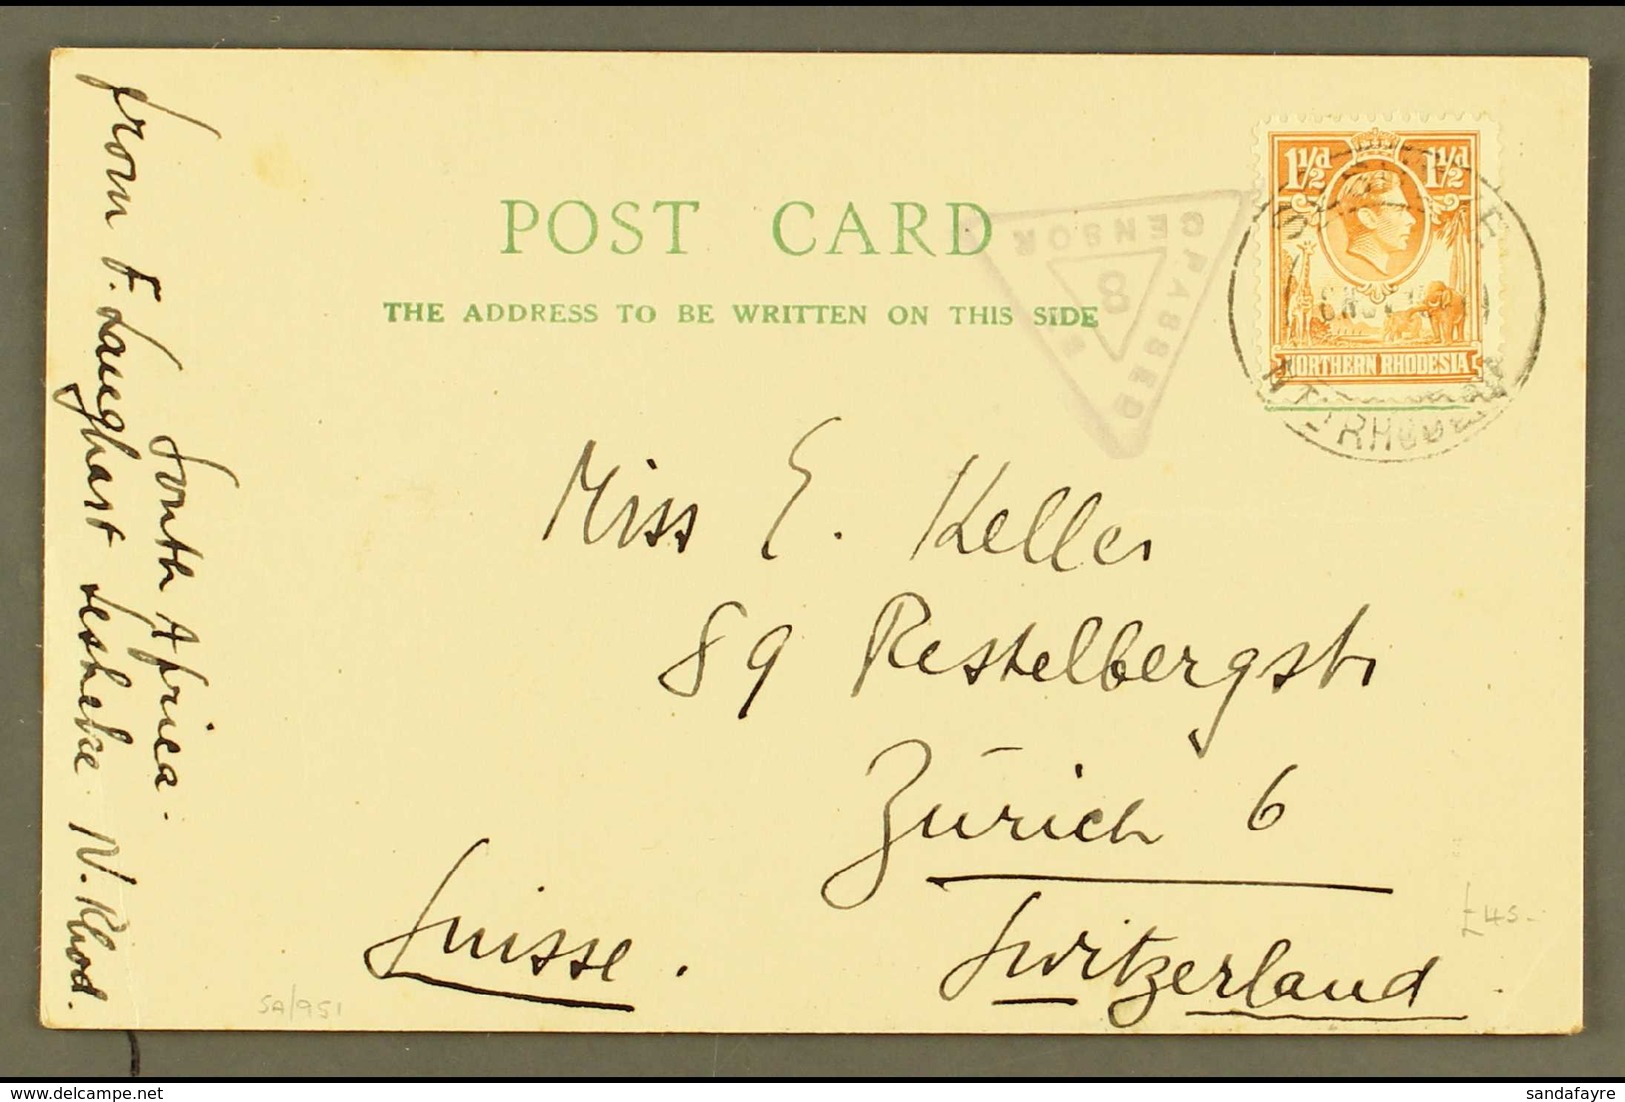 from F. Langhart Sesheke N. Rhod.
South Africa.
POST CARD
THE ADDRESS TO BE WRITTEN ON THIS SIDE
PASSED BY
CENSOR
8
1½d 1½d
NORTHERN RHODESIA
Miss E. Keller
89 Restelbergstr
Zürich 6
Switzerland
Suisse.
£45-
SA/951
sandafayre